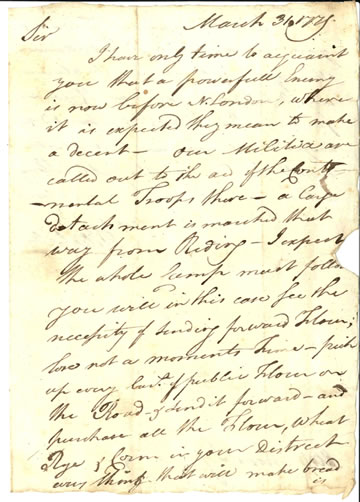 March 31, 1779.
Sir
I have only time to acquaint
you that a powerfull Enemy
is now before N. London, where
it is expected they mean to make
a decent — our Militia are
called out to the aid of the Conti-
-nental Troops there — a large
detachment is marched that
way from Reding — I expect
the whole Camp must follow
you will in this case see the
necessity of sending forward Flour;
lose not a moments time — pick
up every bar.l of public Flour on
the Road & send it forward — and
purchase all the Flour, wheat
Rye & Corn in your District
every Thing that will make bread
is